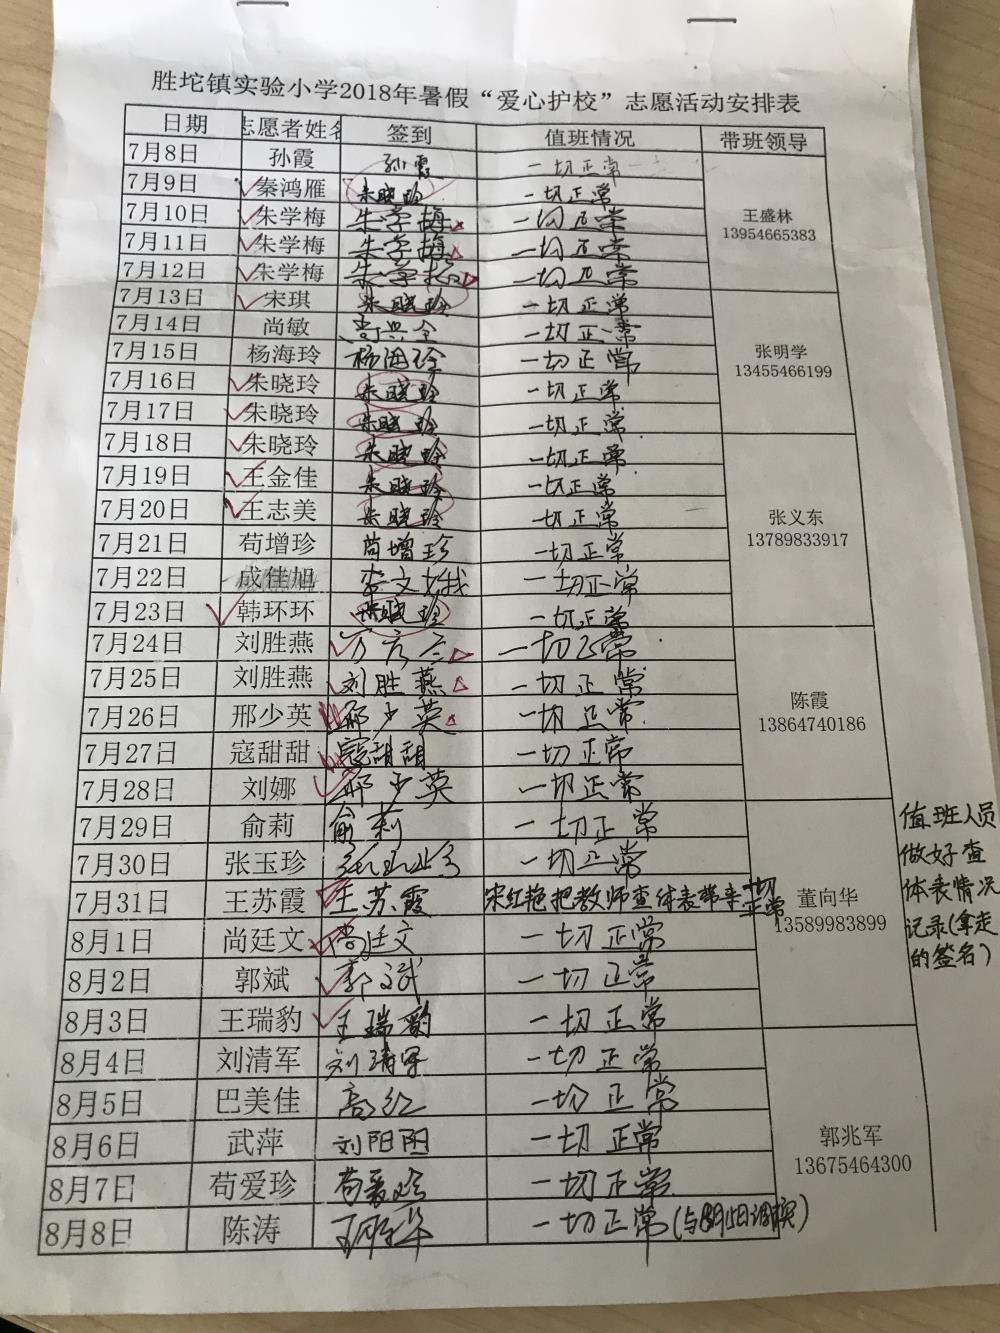 胜坨镇实验小学2018年暑假“爱心护校”志愿活动安排表
日期 志愿者姓名 签到 值班情况 带班领导
7月8日 孙霞 孙霞 一切正常
7月9日 秦鸿雁 朱晓玲 一切正常
7月10日 朱学梅 朱学梅 一切正常 王盛林
7月11日 朱学梅 朱学梅 一切正常 13954665383
7月12日 朱学梅 朱学梅 一切正常
7月13日 宋琪 朱晓玲 一切正常
7月14日 尚敏 尚兴全 一切正常
7月15日 杨海玲 杨海玲 一切正常 张明学
7月16日 朱晓玲 朱晓玲 一切正常 13455466199
7月17日 朱晓玲 朱晓玲 一切正常
7月18日 朱晓玲 朱晓玲 一切正常
7月19日 王金佳 朱晓玲 一切正常
7月20日 王志美 朱晓玲 一切正常 张义东
7月21日 苟增珍 苟增珍 一切正常 13789833917
7月22日 成佳旭 一切正常
7月23日 韩环环 朱晓玲 一切正常
7月24日 刘胜燕 一切正常
7月25日 刘胜燕 刘胜燕 一切正常
7月26日 邢少英 邢少英 一切正常 陈霞
7月27日 寇甜甜 寇甜甜 一切正常 13864740186
7月28日 刘娜 邢少英 一切正常
7月29日 俞莉 俞莉 一切正常
7月30日 张玉珍 张玉珍 一切正常
7月31日 王苏霞 王苏霞 宋红艳把教师查体表带来 一切正常 董向华
8月1日 尚廷文 尚廷文 一切正常 13589983899
8月2日 郭斌 郭斌 一切正常
8月3日 王瑞豹 王瑞豹 一切正常
8月4日 刘清军 刘清军 一切正常
8月5日 巴美佳 高红 一切正常
8月6日 武萍 刘阳阳 一切正常 郭兆军
8月7日 苟爱珍 苟爱珍 一切正常 13675464300
8月8日 陈涛 一切正常(与8月15日调换)
值班人员
做好查
体表情况
记录(拿走
的签名)